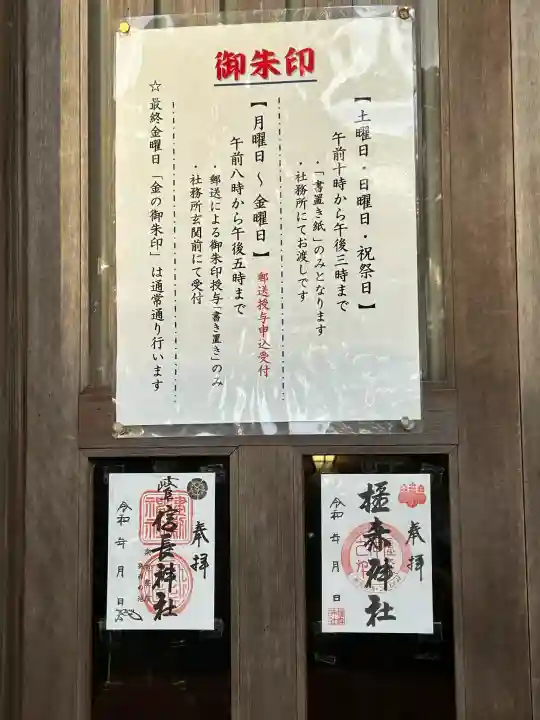 御朱印
【土曜日・日曜日・祝祭日】
午前十時から午後三時まで
・「書置き紙」のみとなります
・社務所にてお渡しです
【月曜日～金曜日】郵送授与申込受付
午前八時から午後五時まで
・郵送による御朱印授与「書き置き」のみ
・社務所玄関前にて受付
☆最終金曜日「金の御朱印」は通常通り行います
奉拝
橿森神社
令和 年 月 日
奉拝
信長神社
令和 年 月 日